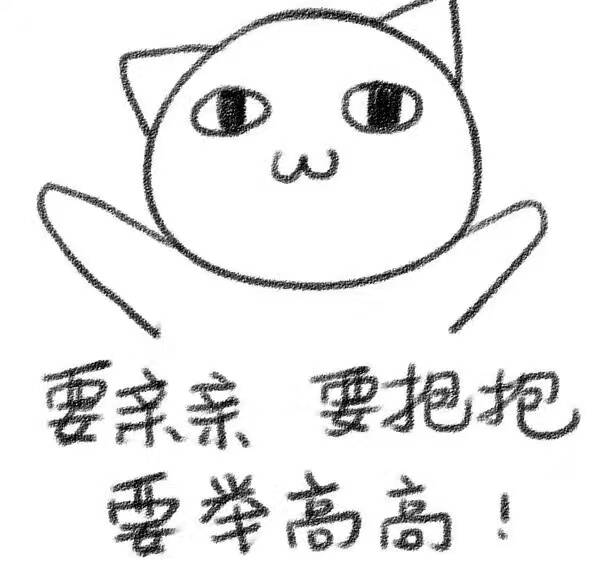 要亲亲 要抱抱
要举高高！